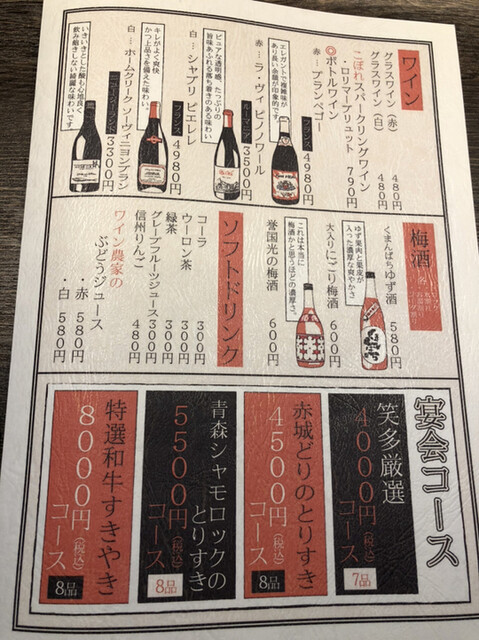 ワイン
グラスワイン（赤） 480円
グラスワイン（白） 480円
こぼれスパークリングワイン
・ロリマーブリュット 790円
◎ボトルワイン
赤…ブランペゴー
フランス 4980円
エレガントで複雑味が
あり長い余韻が印象的です。
赤…ラ・ヴィ ピノノワール
ルーマニア 3500円
ピュアな透明感、たっぷりの
旨味あふれる落ち着きのある味わい
白…シャブリ ピエレレ
フランス 4980円
キレがよく爽快
かつ上品さを備えた味わい。
白…ホームクリーク ソーヴィニヨンブラン
ニュージーランド 3300円
いきいきとした酸も心地良く
飲み飽きしない綺麗な味わいです。
梅酒
くまんばちゆず酒 580円
ゆず果肉と果皮が
入った濃厚な爽やかさ
大入りにごり梅酒 600円
これは本当に
梅酒かと思うほどの濃厚さ。
誉国光の梅酒 600円
ソフトドリンク
コーラ 300円
ウーロン茶 300円
緑茶 300円
グレープフルーツジュース 300円
信州りんご 480円
ワイン農家の
ぶどうジュース
・赤 580円
・白 580円
宴会コース
笑多厳選
4000円（税込）コース 7品
赤城どりのとりすき
4500円（税込）コース 8品
青森シャモロックの
とりすき
5500円（税込）コース 8品
特選和牛すきやき
8000円（税込）コース 8品